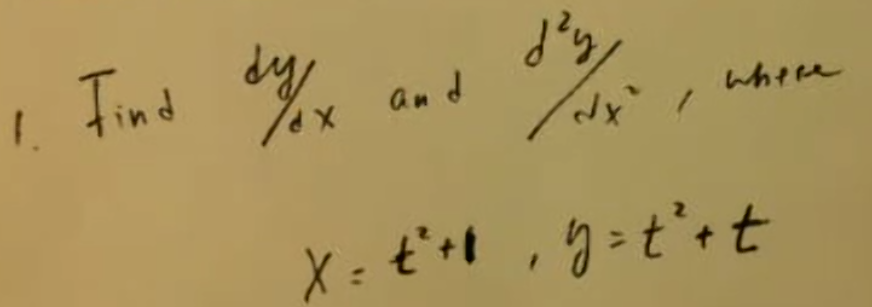 1. Find dy/dx and d²y/dx², where
x = t²+1, y = t²+t